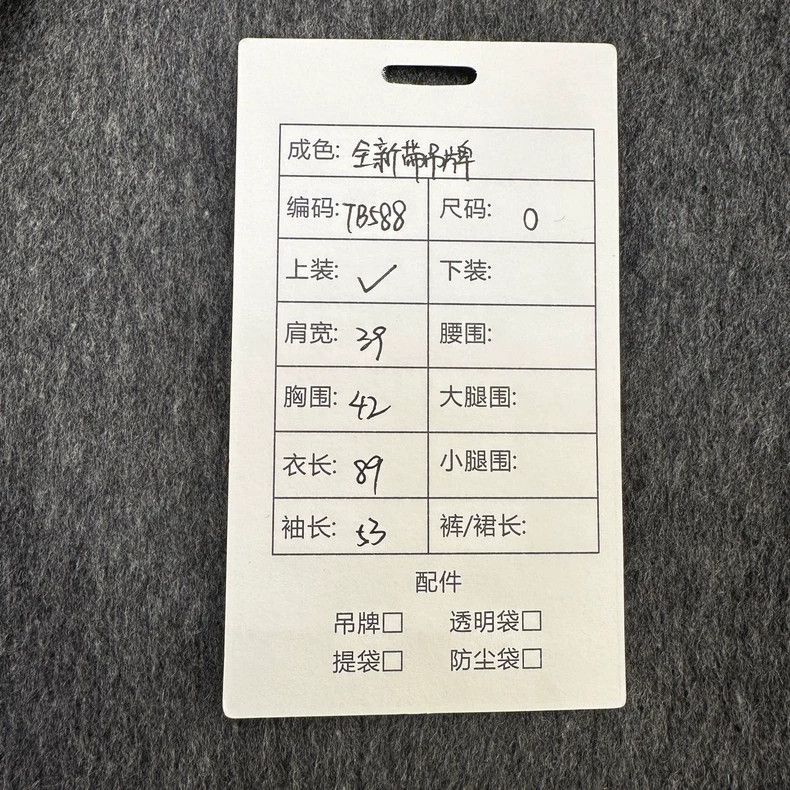 成色: 全新带吊牌
编码: TB588 尺码: 0
上装: ✓ 下装:
肩宽: 39 腰围:
胸围: 42 大腿围:
衣长: 89 小腿围:
袖长: 53 裤/裙长:
配件
吊牌□ 透明袋□
提袋□ 防尘袋□